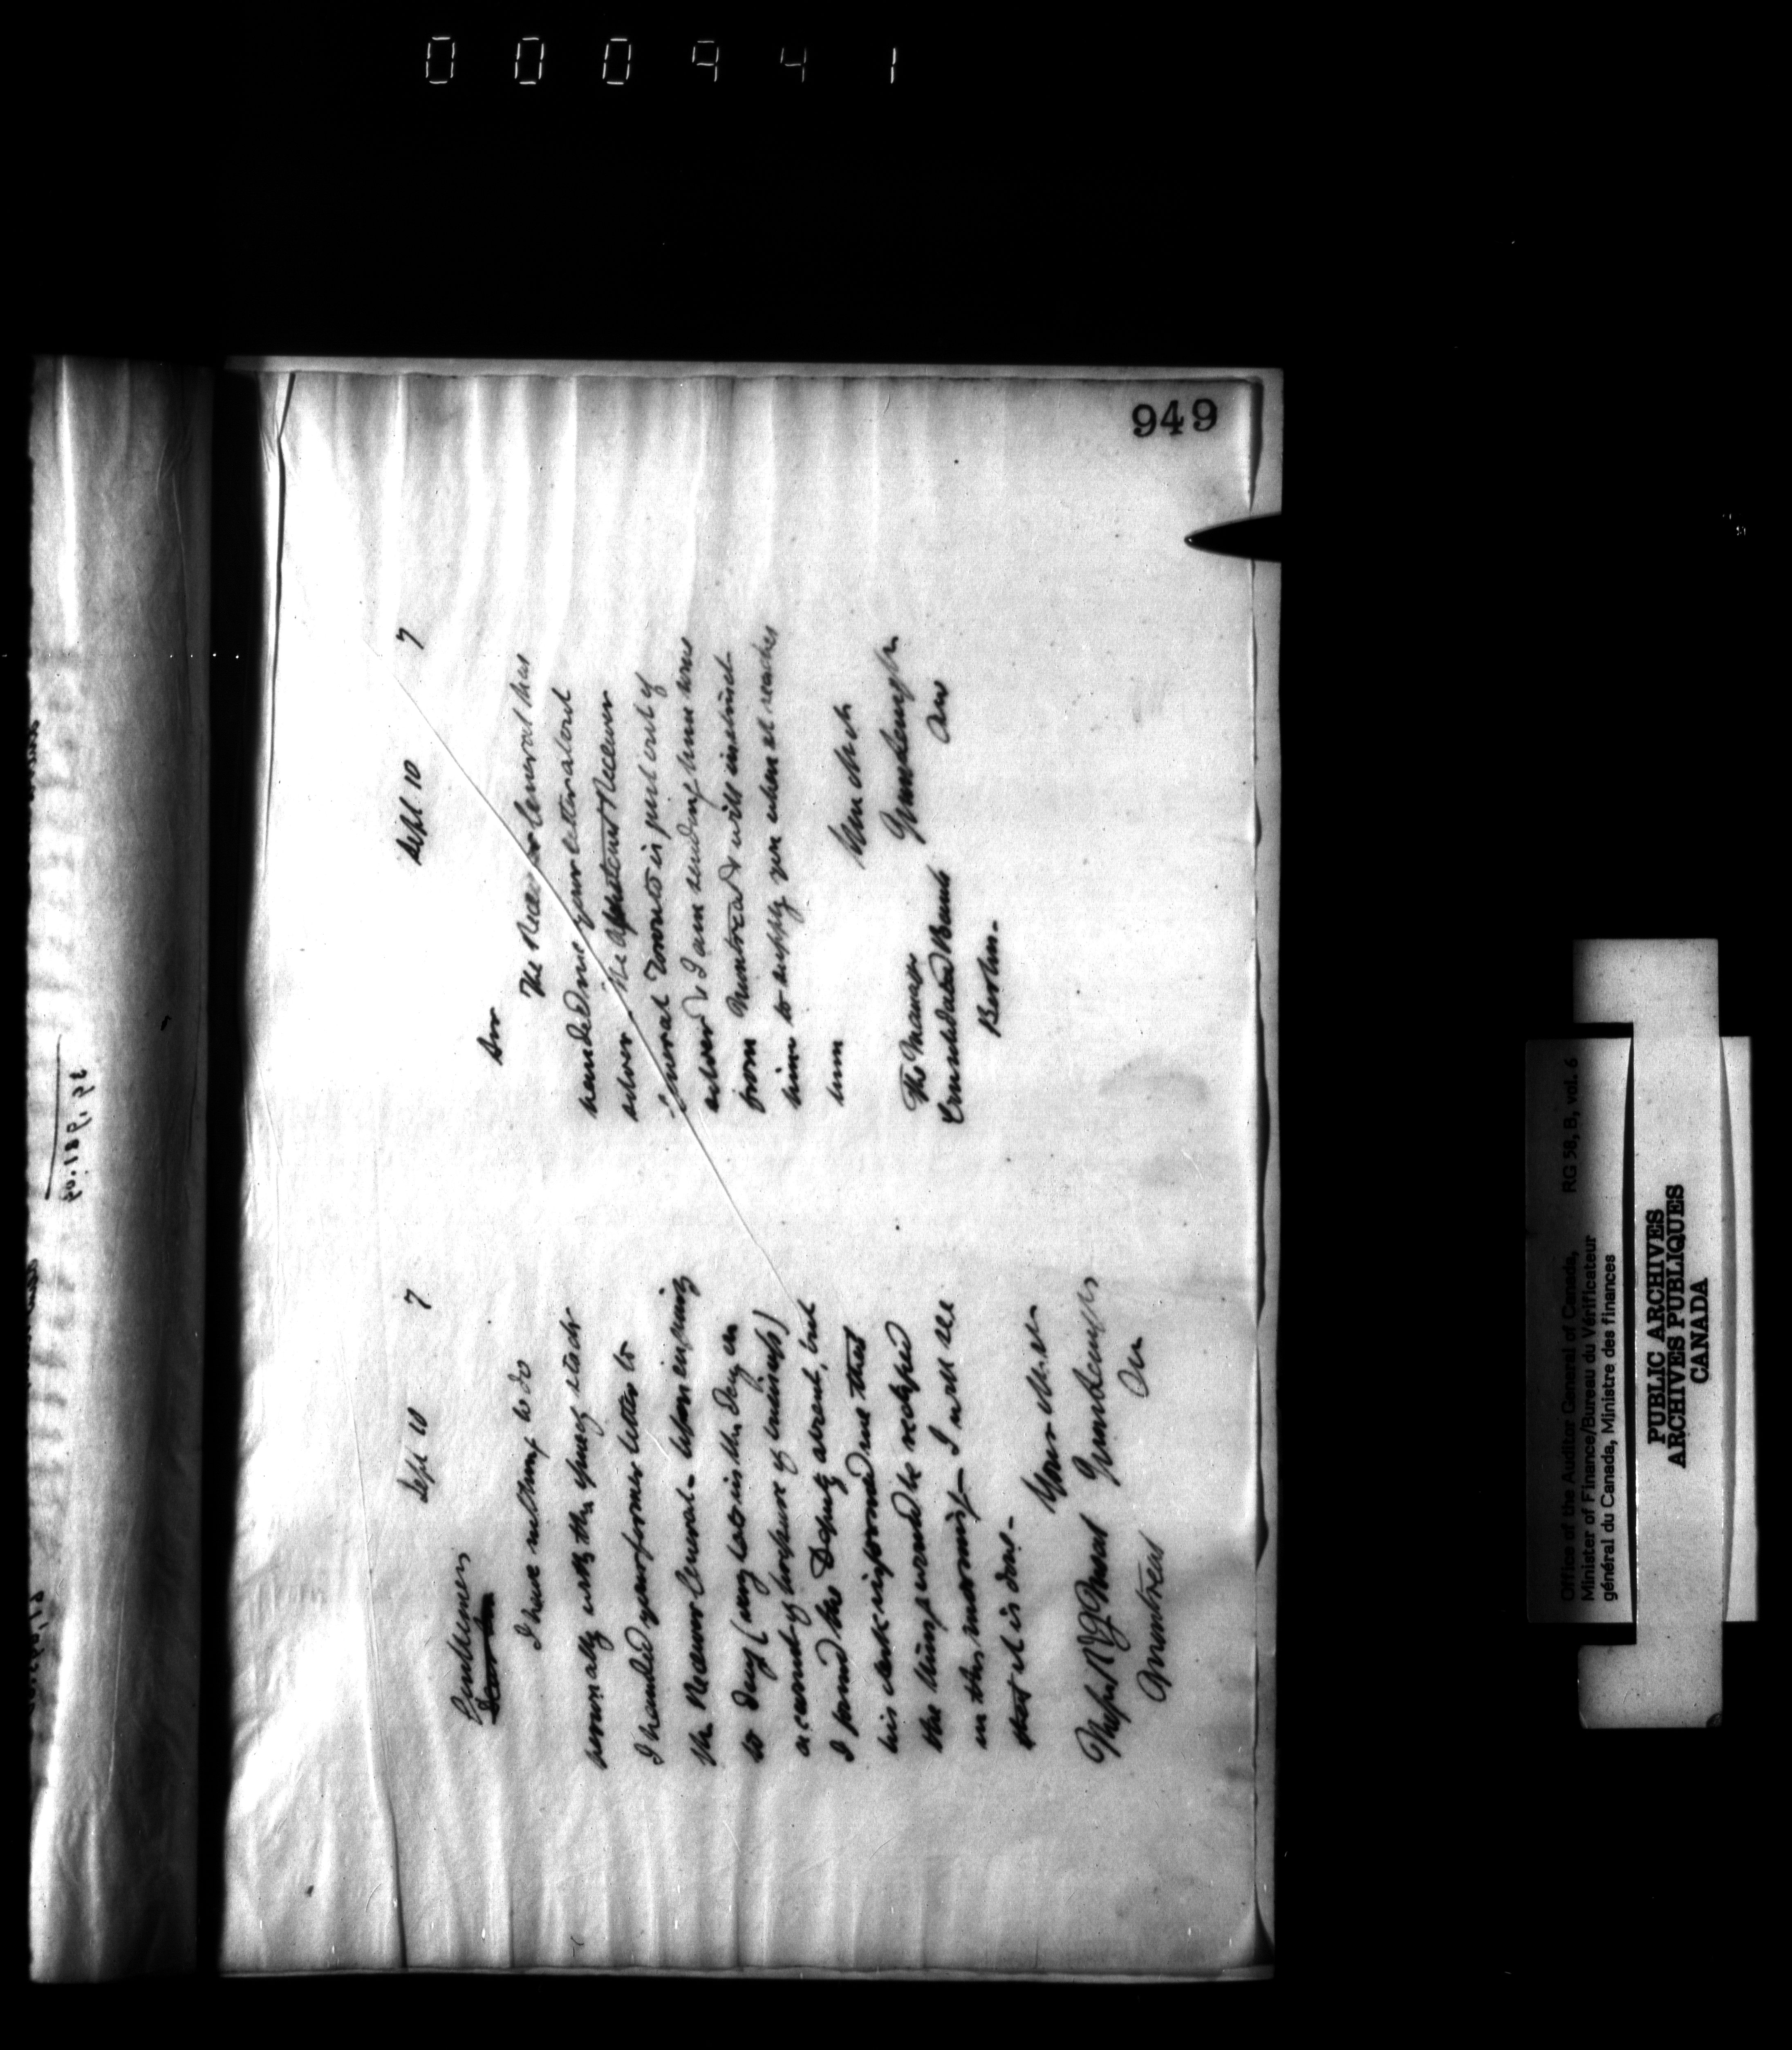 000941
949
Sept 10 7
Gentlemen
I have nothing to do
personally with the
I handed your former letter to
the Receiver General - Upon enquiring
to day (very late in the day on
account of pressure of business)
I found the Deputy absent, but
his clerk informed me that
the thing would be rectified
in the morning - I will see
that it is done -
Your ob. ser
Montreal
Sept 10 7
Sir
The Receiver General has
handed me your letter about
silver - The Assistant Receiver
General Toronto is just out of
silver & I am sending him some
from Montreal & will instruct
him to supply you when it reaches
him
The Manager
Consolidated Bank
Berlin -
Office of the Auditor General of Canada, RG 58, B, vol. 6
Minister of Finance/Bureau du Vérificateur
général du Canada, Ministre des finances
PUBLIC ARCHIVES
ARCHIVES PUBLIQUES
CANADA